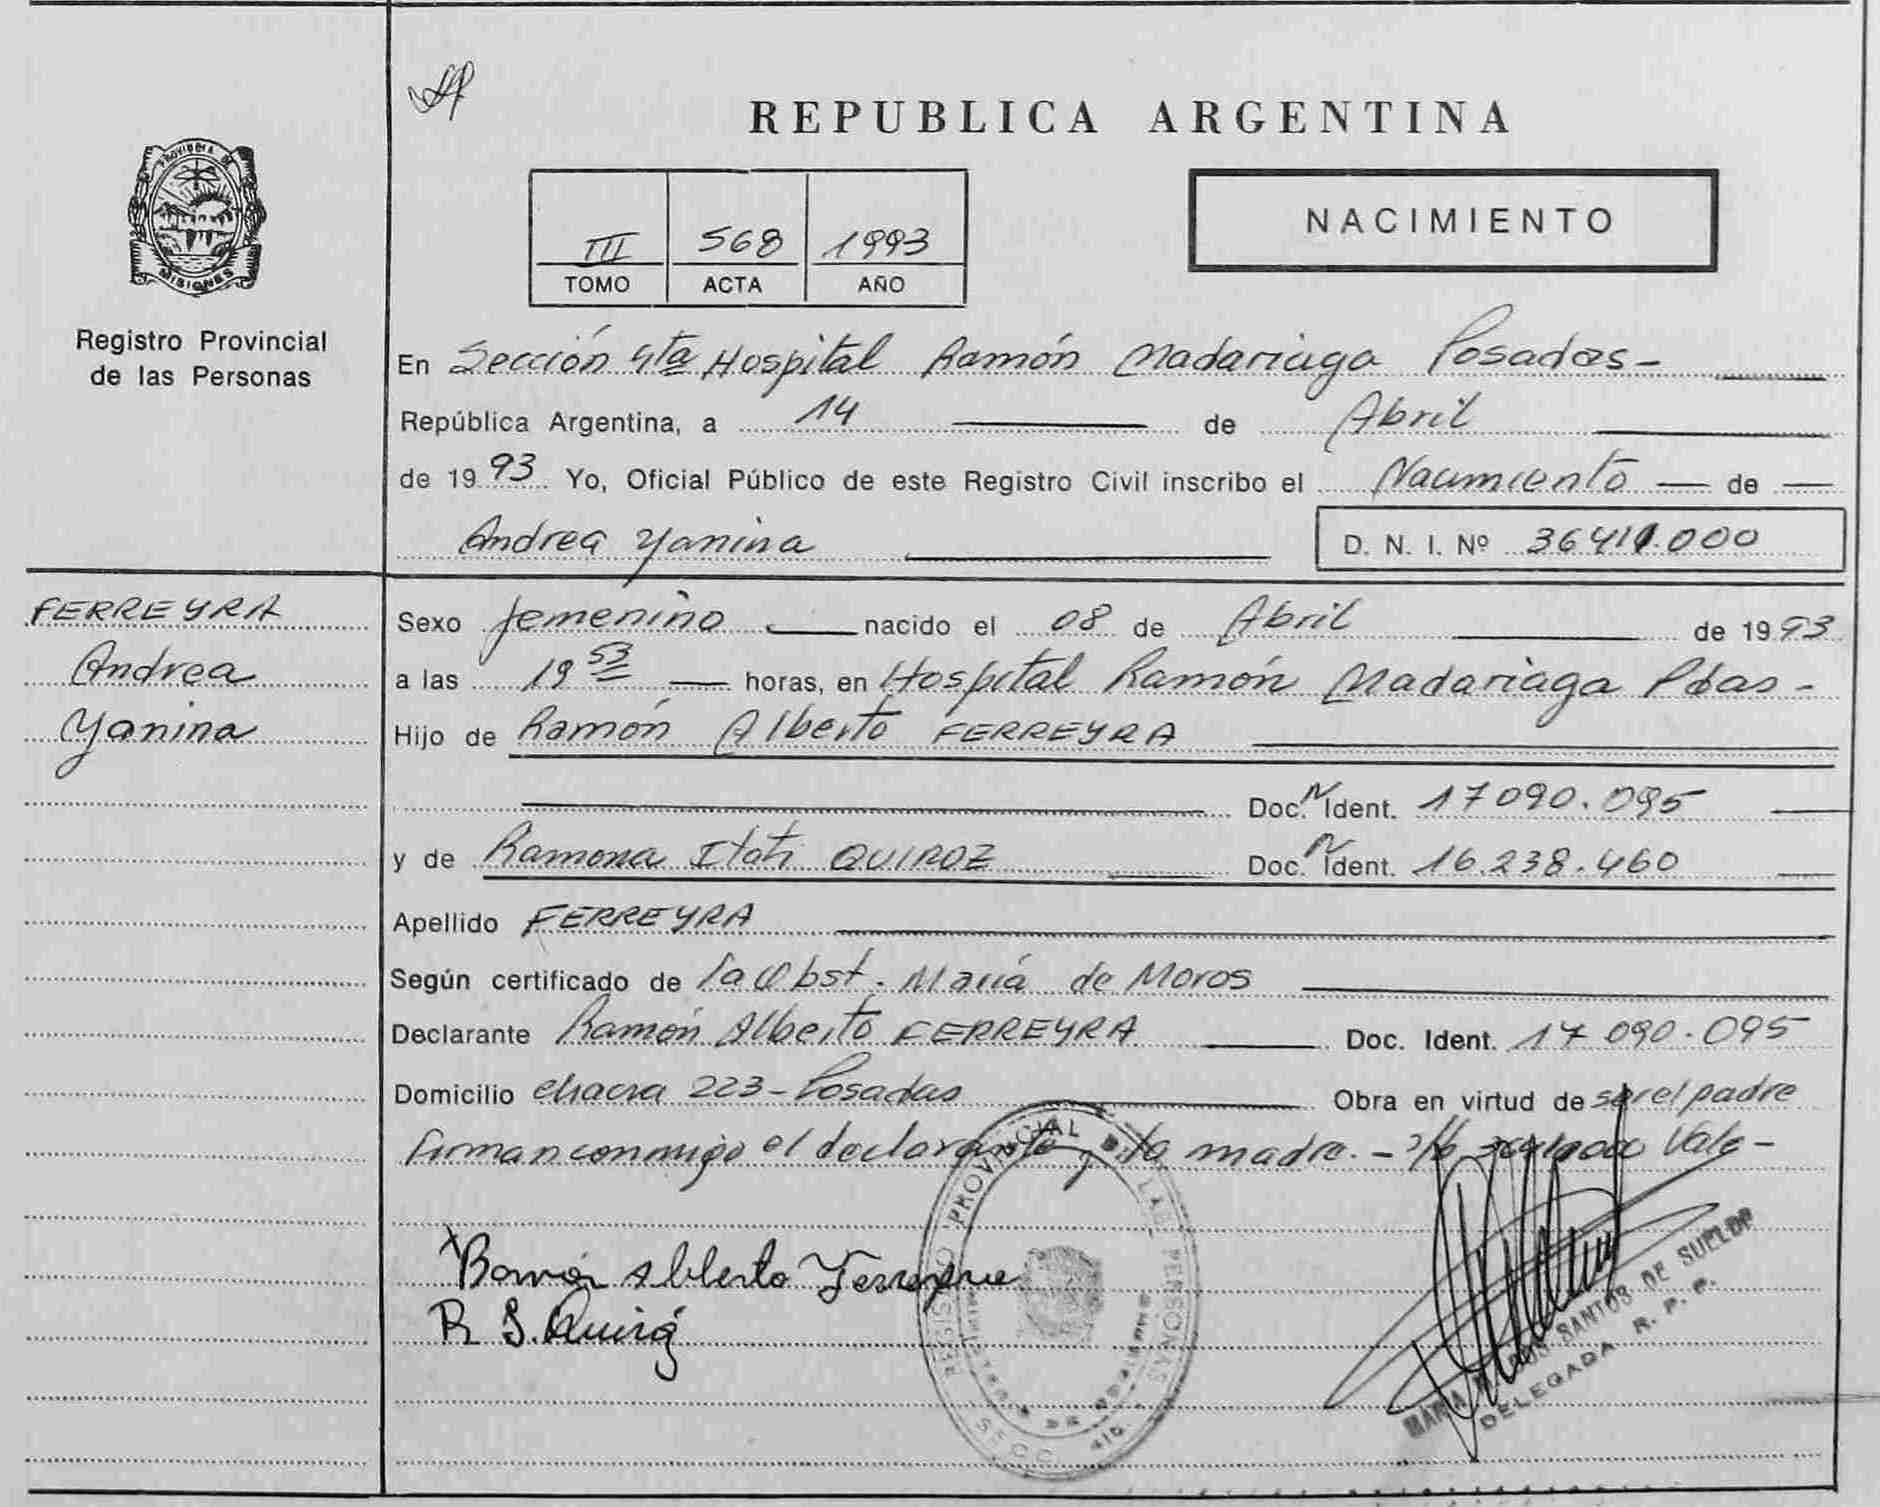 REPUBLICA ARGENTINA
PROVINCIA DE
MISIONES
Registro Provincial
de las Personas
NACIMIENTO
III 568 1993
TOMO ACTA AÑO
En Sección 4ta Hospital Ramón Madariaga Posadas-
República Argentina, a 14 de Abril
de 1993 Yo, Oficial Público de este Registro Civil inscribo el Nacimiento de
Andrea Yanina D. N. I. Nº 36411.000
FERREYRA
Andrea
Yanina
Sexo femenino nacido el 08 de Abril de 1993
a las 19 53 horas, en Hospital Ramón Madariaga Pdas-
Hijo de Ramón Alberto FERREYRA
Doc. N Ident. 17090.095
y de Ramona Itati QUIROZ Doc. N Ident. 16.238.460
Apellido FERREYRA
Según certificado de la Obst. María de Moros
Declarante Ramón Alberto FERREYRA Doc. Ident. 17 090.095
Domicilio chacra 223-Posadas Obra en virtud de ser el padre
firman conmigo el declarante y la madre.- Vale-
X Ramón Alberto Ferreyra
R I. Quiroz
REGISTRO PROVINCIAL DE LAS PERSONAS
SECC. 4ta.
MARIA DOS SANTOS DE SUELDO
DELEGADA R. P. P.